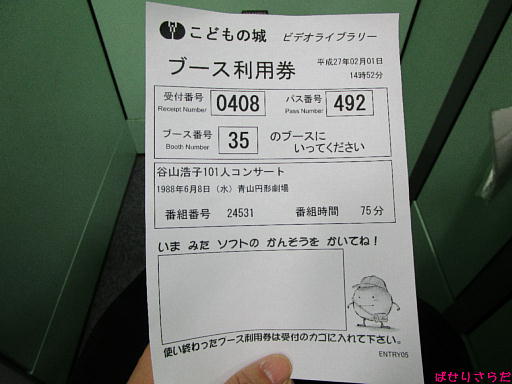 こどもの城 ビデオライブラリー
ブース利用券
平成27年02月01日
14時52分
受付番号 0408 パス番号 492
Receipt Number Pass Number
ブース番号 35 のブースに
Booth Number いってください
谷山浩子101人コンサート
1988年6月8日（水）青山円形劇場
番組番号 24531 番組時間 75分
いま みた ソフトの かんそうを かいてね！
使い終わったブース利用券は受付のカゴに入れて下さい。
ENTRY05
ぱせりさらだ